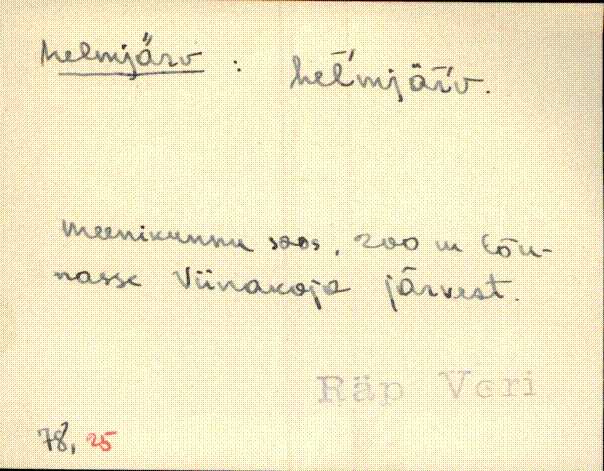 helmjärv : hel̄'mjär̄'v.
meenikunnu soos, 200 m lõu-
nasse Viinakoja järvest.
Räp Veri
78, 25